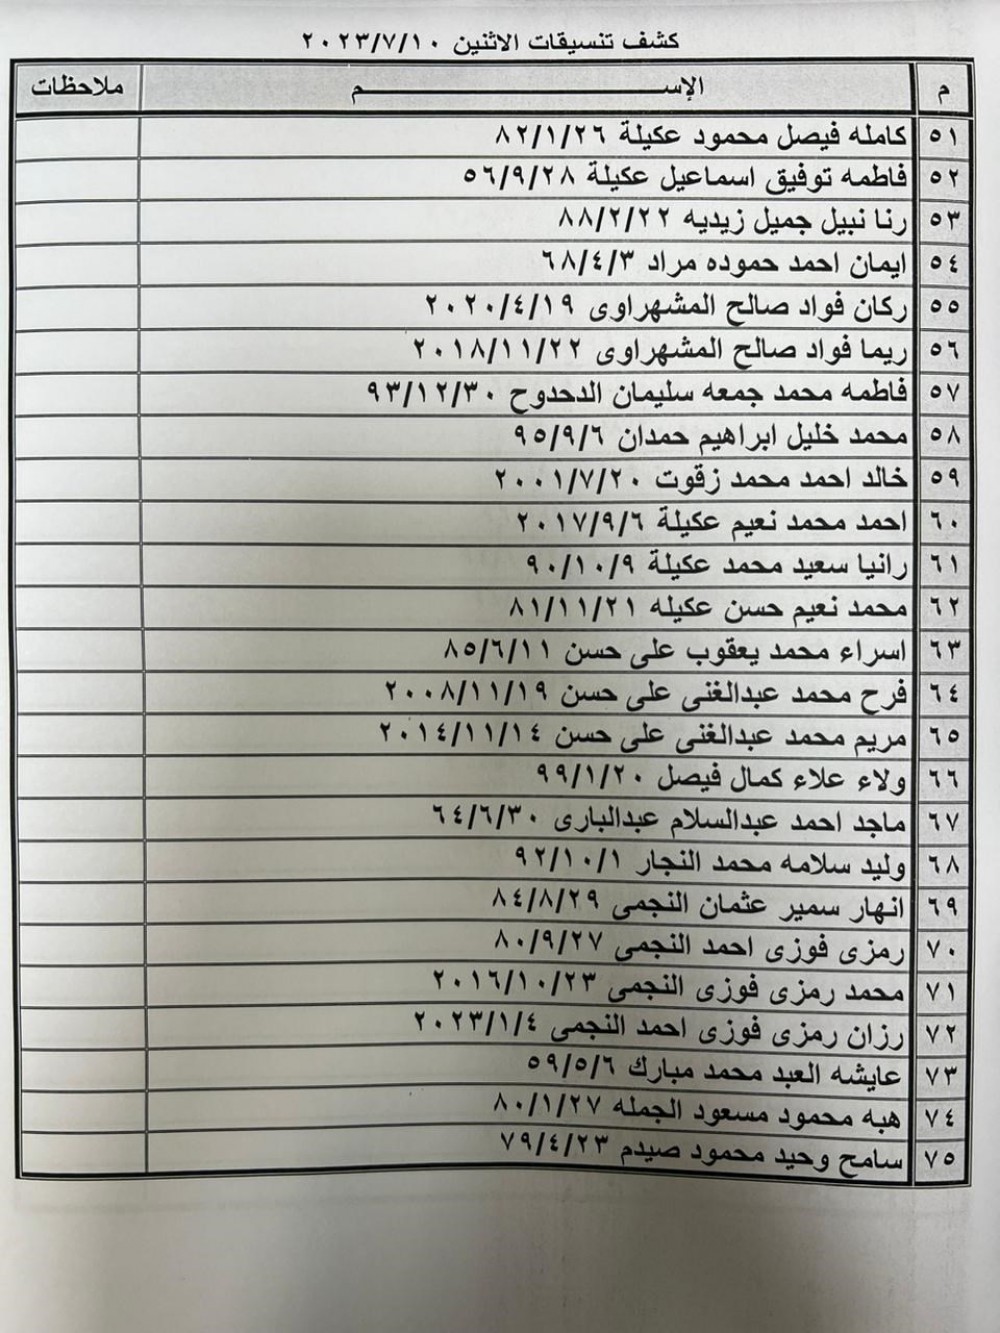 كشف تنسيقات الاثنين ٢٠٢٣/٧/١٠
م الإســـــــم ملاحظات
٥١ كامله فيصل محمود عكيلة ٨٢/١/٢٦
٥٢ فاطمه توفيق اسماعيل عكيلة ٥٦/٩/٢٨
٥٣ رنا نبيل جميل زيديه ٨٨/٢/٢٢
٥٤ ايمان احمد حموده مراد ٦٨/٤/٣
٥٥ ركان فواد صالح المشهراوى ٢٠٢٠/٤/١٩
٥٦ ريما فواد صالح المشهراوى ٢٠١٨/١١/٢٢
٥٧ فاطمه محمد جمعه سليمان الدحدوح ٩٣/١٢/٣٠
٥٨ محمد خليل ابراهيم حمدان ٩٥/٩/٦
٥٩ خالد احمد محمد زقوت ٢٠٠١/٧/٢٠
٦٠ احمد محمد نعيم عكيلة ٢٠١٧/٩/٦
٦١ رانيا سعيد محمد عكيلة ٩٠/١٠/٩
٦٢ محمد نعيم حسن عكيله ٨١/١١/٢١
٦٣ اسراء محمد يعقوب على حسن ٨٥/٦/١١
٦٤ فرح محمد عبدالغنى على حسن ٢٠٠٨/١١/١٩
٦٥ مريم محمد عبدالغنى على حسن ٢٠١٤/١١/١٤
٦٦ ولاء علاء كمال فيصل ٩٩/١/٢٠
٦٧ ماجد احمد عبدالسلام عبدالبارى ٦٤/٦/٣٠
٦٨ وليد سلامه محمد النجار ٩٢/١٠/١
٦٩ انهار سمير عثمان النجمى ٨٤/٨/٢٩
٧٠ رمزى فوزى احمد النجمى ٨٠/٩/٢٧
٧١ محمد رمزى فوزى النجمى ٢٠١٦/١٠/٢٣
٧٢ رزان رمزى فوزى احمد النجمى ٢٠٢٣/١/٤
٧٣ عايشه العبد محمد مبارك ٥٩/٥/٦
٧٤ هبه محمود مسعود الجمله ٨٠/١/٢٧
٧٥ سامح وحيد محمود صيدم ٧٩/٤/٢٣